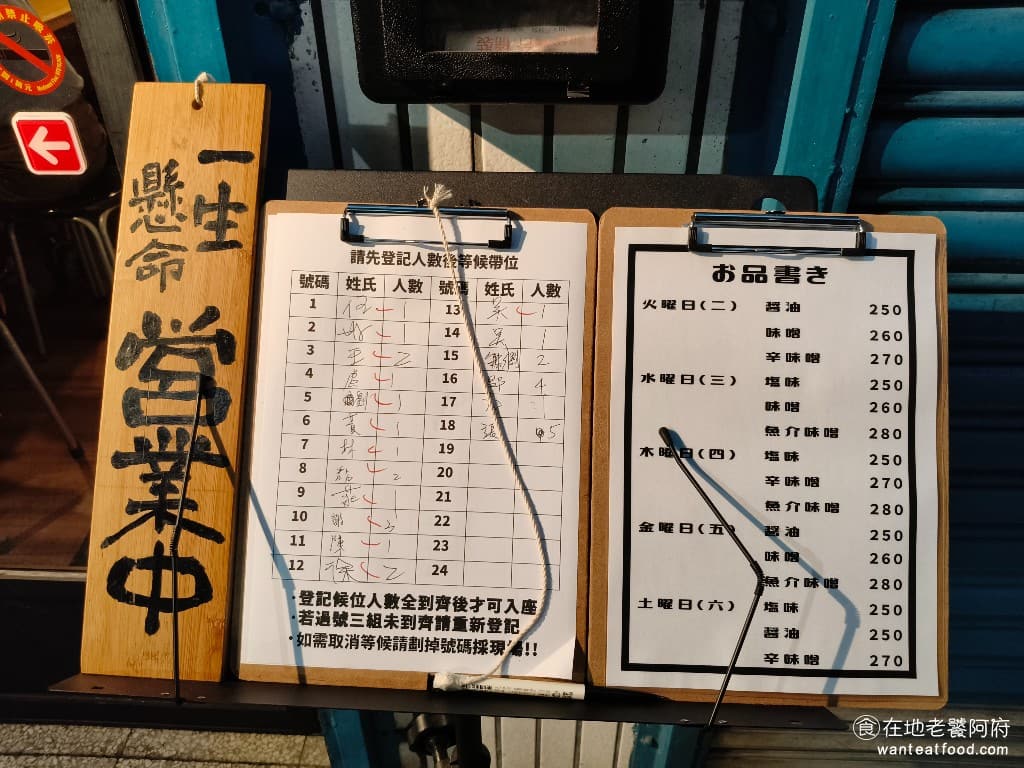 一生
懸命
営業中
請先登記人數後等候帶位
號碼 姓氏 人數 號碼 姓氏 人數
1 伍 1 13 吳 1
2 1 14 吳 1
3 王 2 15 2
4 盧 1 16 鄭 4
5 劉 1 17 1
6 黃 1 18 張 5
7 林 1 19
8 2 20
9 莊 1 21
10 謝 3 22
11 陳 1 23
12 徐 2 24
·登記候位人數全到齊後才可入座
·若過號三組未到齊請重新登記
·如需取消等候請劃掉號碼採現場!!
お品書き
火曜日(二) 醤油 250
味噌 260
辛味噌 270
水曜日(三) 塩味 250
味噌 260
魚介味噌 280
木曜日(四) 塩味 250
辛味噌 270
魚介味噌 280
金曜日(五) 醤油 250
味噌 260
魚介味噌 280
土曜日(六) 塩味 250
醤油 250
辛味噌 270
食 在地老饕阿府
wanteatfood.com